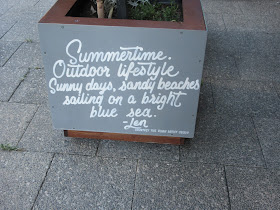 Summertime.
Outdoor lifestyle
Sunny days, sandy beaches
sailing on a bright
blue sea.
-Len